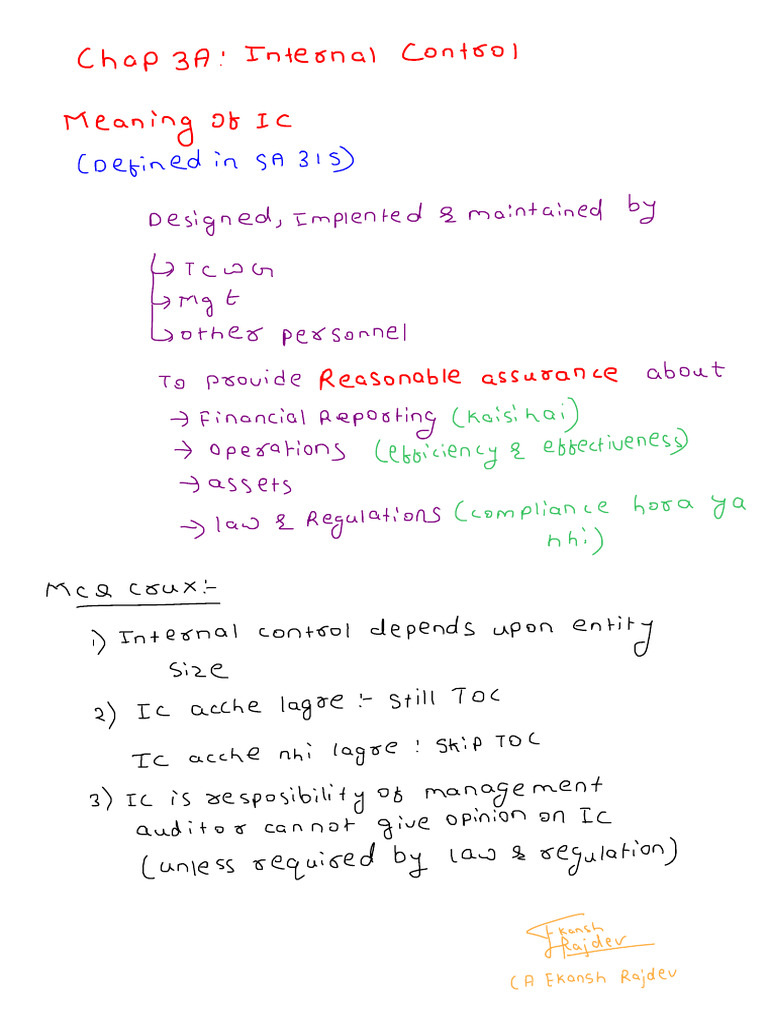 Chap 3A: Internal Control
Meaning of IC
(Defined in SA 315)
Designed, Implented & maintained by
→ TCWG
→ Mgt
→ other personnel
To provide Reasonable assurance about
→ Financial Reporting (kaisi hai)
→ operations (efficiency & effectiveness)
→ assets
→ law & Regulations (compliance hora ya
nhi)
MCQ crux:-
1) Internal control depends upon entity
size
2) IC acche lagre :- Still TOC
IC acche nhi lagre : Skip TOC
3) IC is resposibility of management
auditor cannot give opinion on IC
(unless required by law & regulation)
Ekansh
Rajdev
CA Ekansh Rajdev